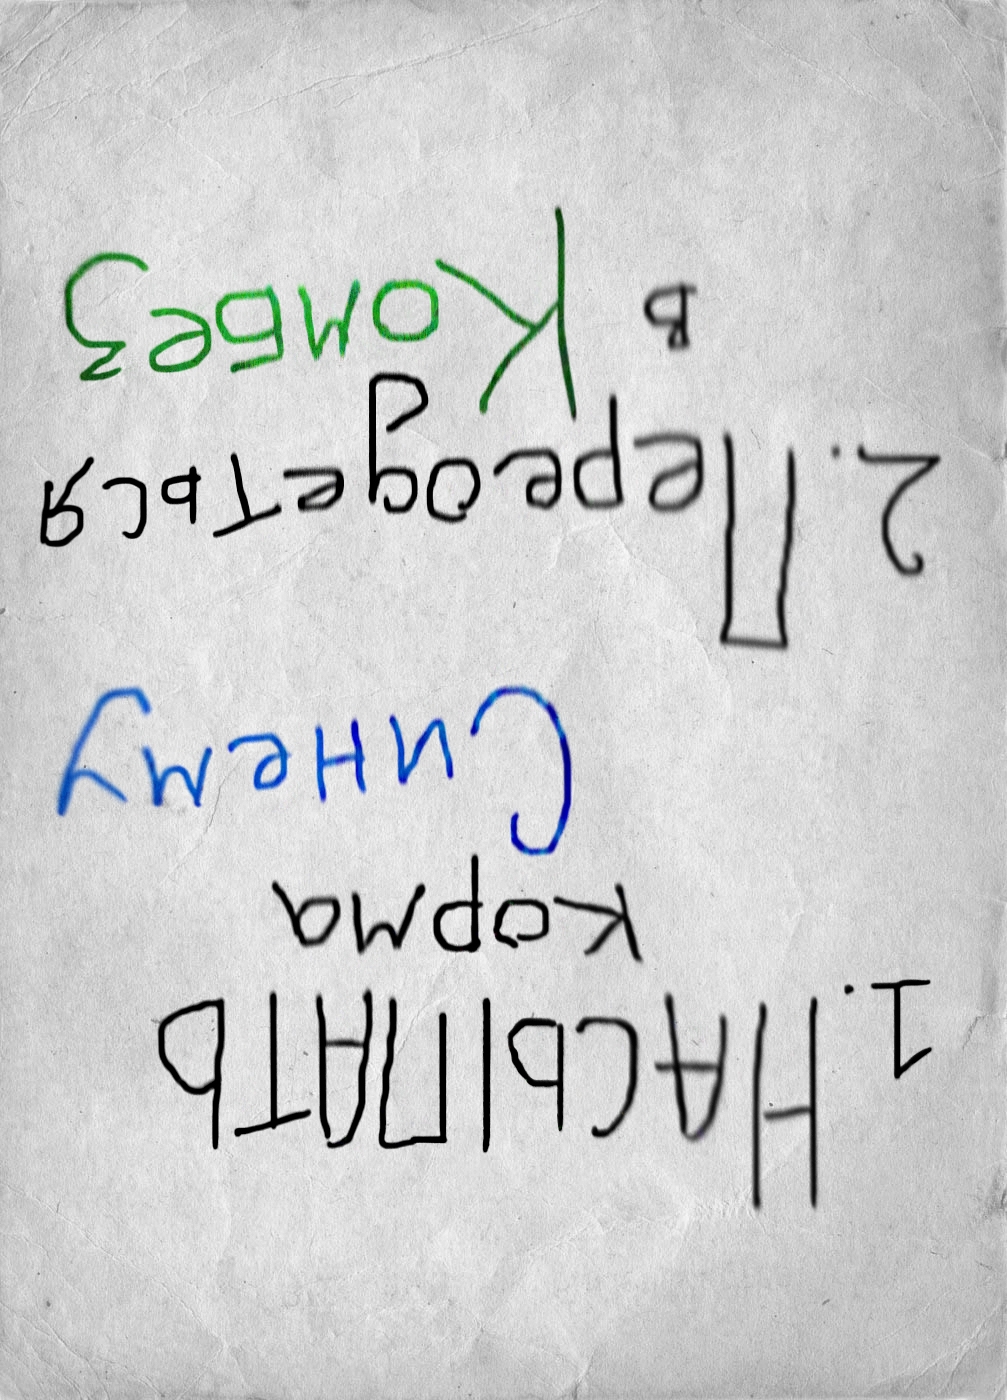 1. НАСЫПАТЬ
корма
Синему
2. Переодеться
в Комбез